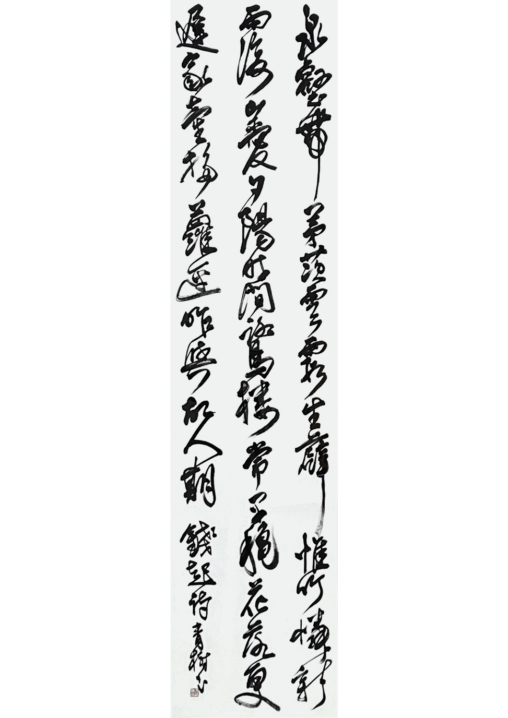 泉壑帶茅茨雲霞生薜惟竹憐新
雨後山愛夕陽時閒鷺棲常早穐花落更
遲家童掃蘿逕昨與故人期 錢起詩